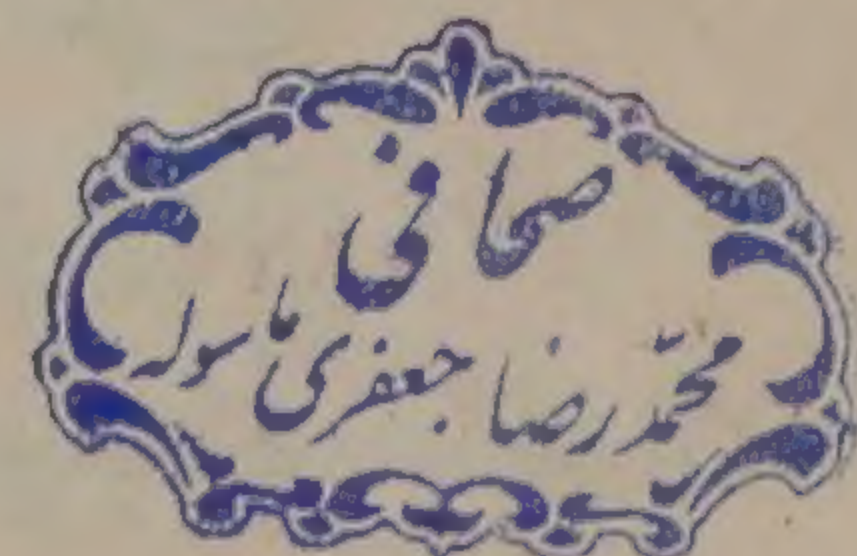 صحافی
محمّد رضا جعفری ماسوله